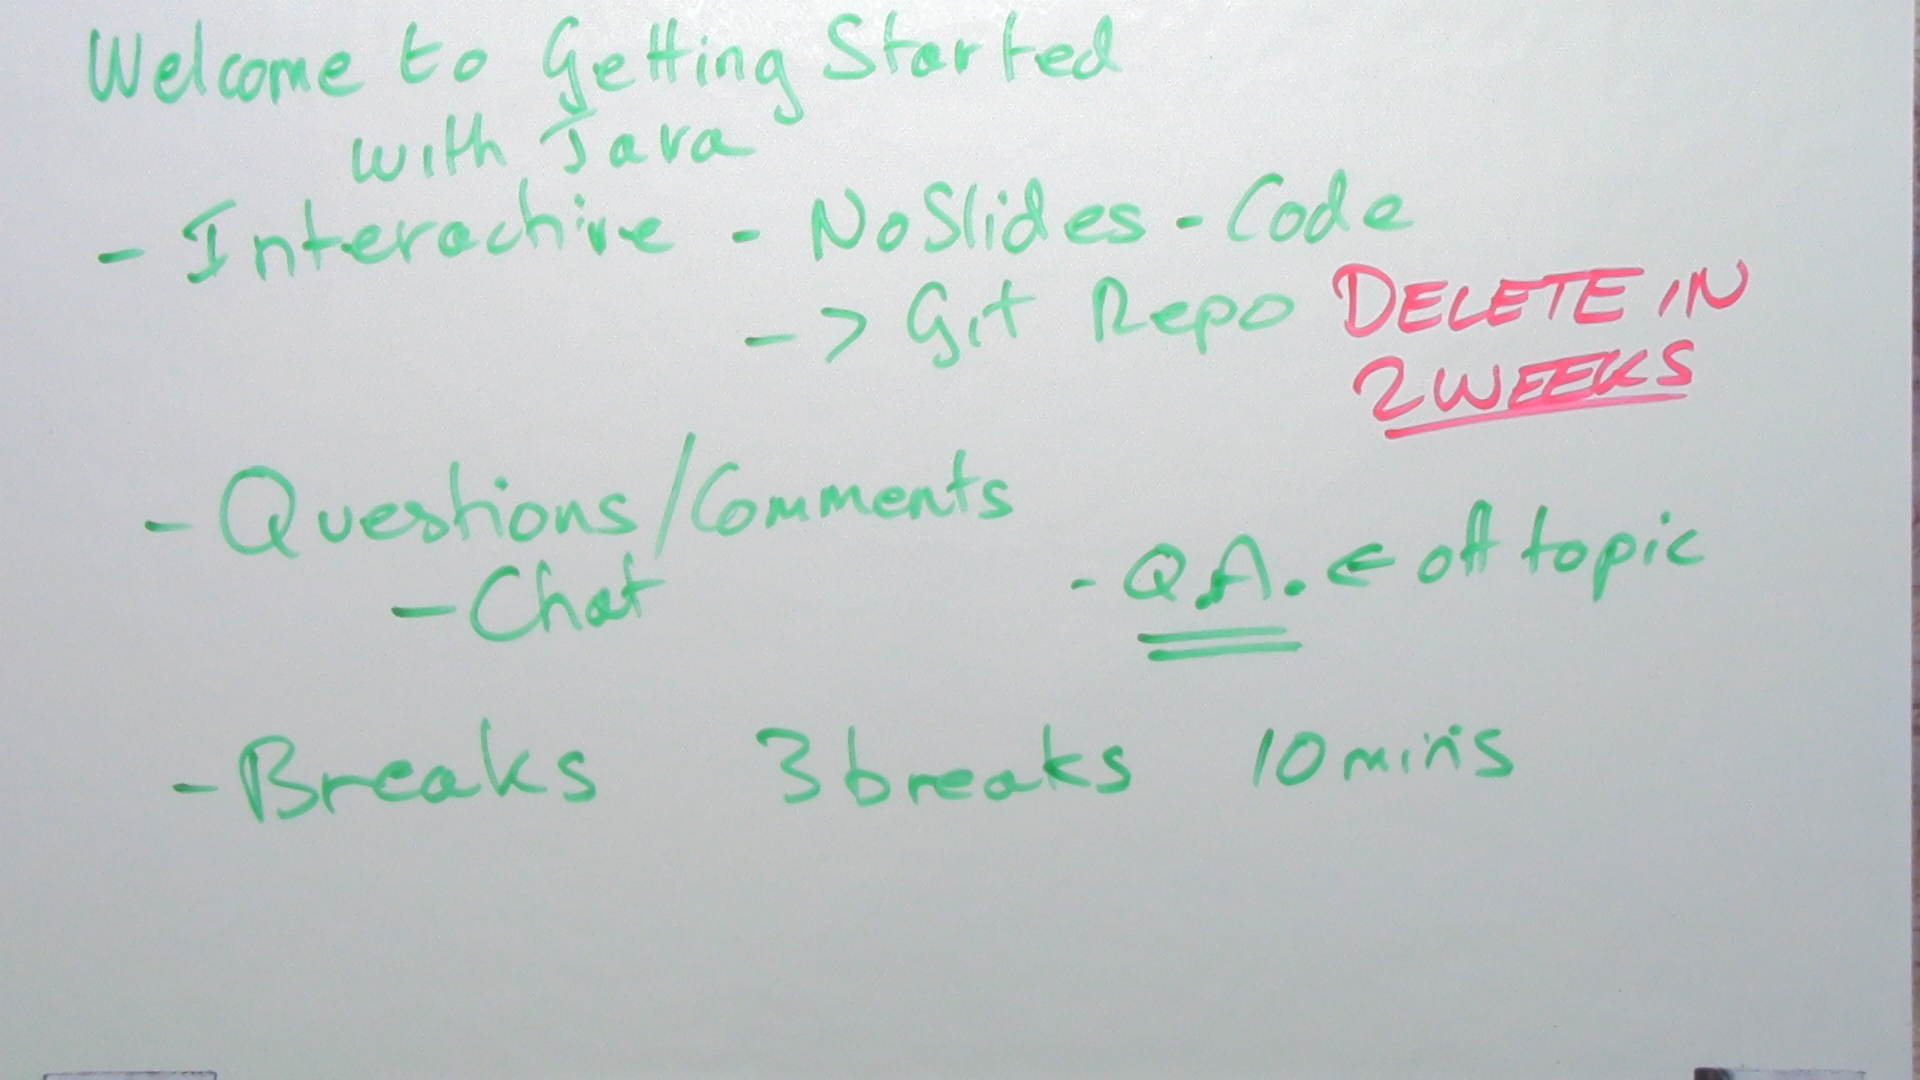 Welcome to Getting Started
with Java
- Interactive - No Slides - Code
-> Git Repo DELETE IN
2 WEEKS
- Questions/Comments
- Chat
- Q.A. ← off topic
- Breaks 3 breaks 10 mins